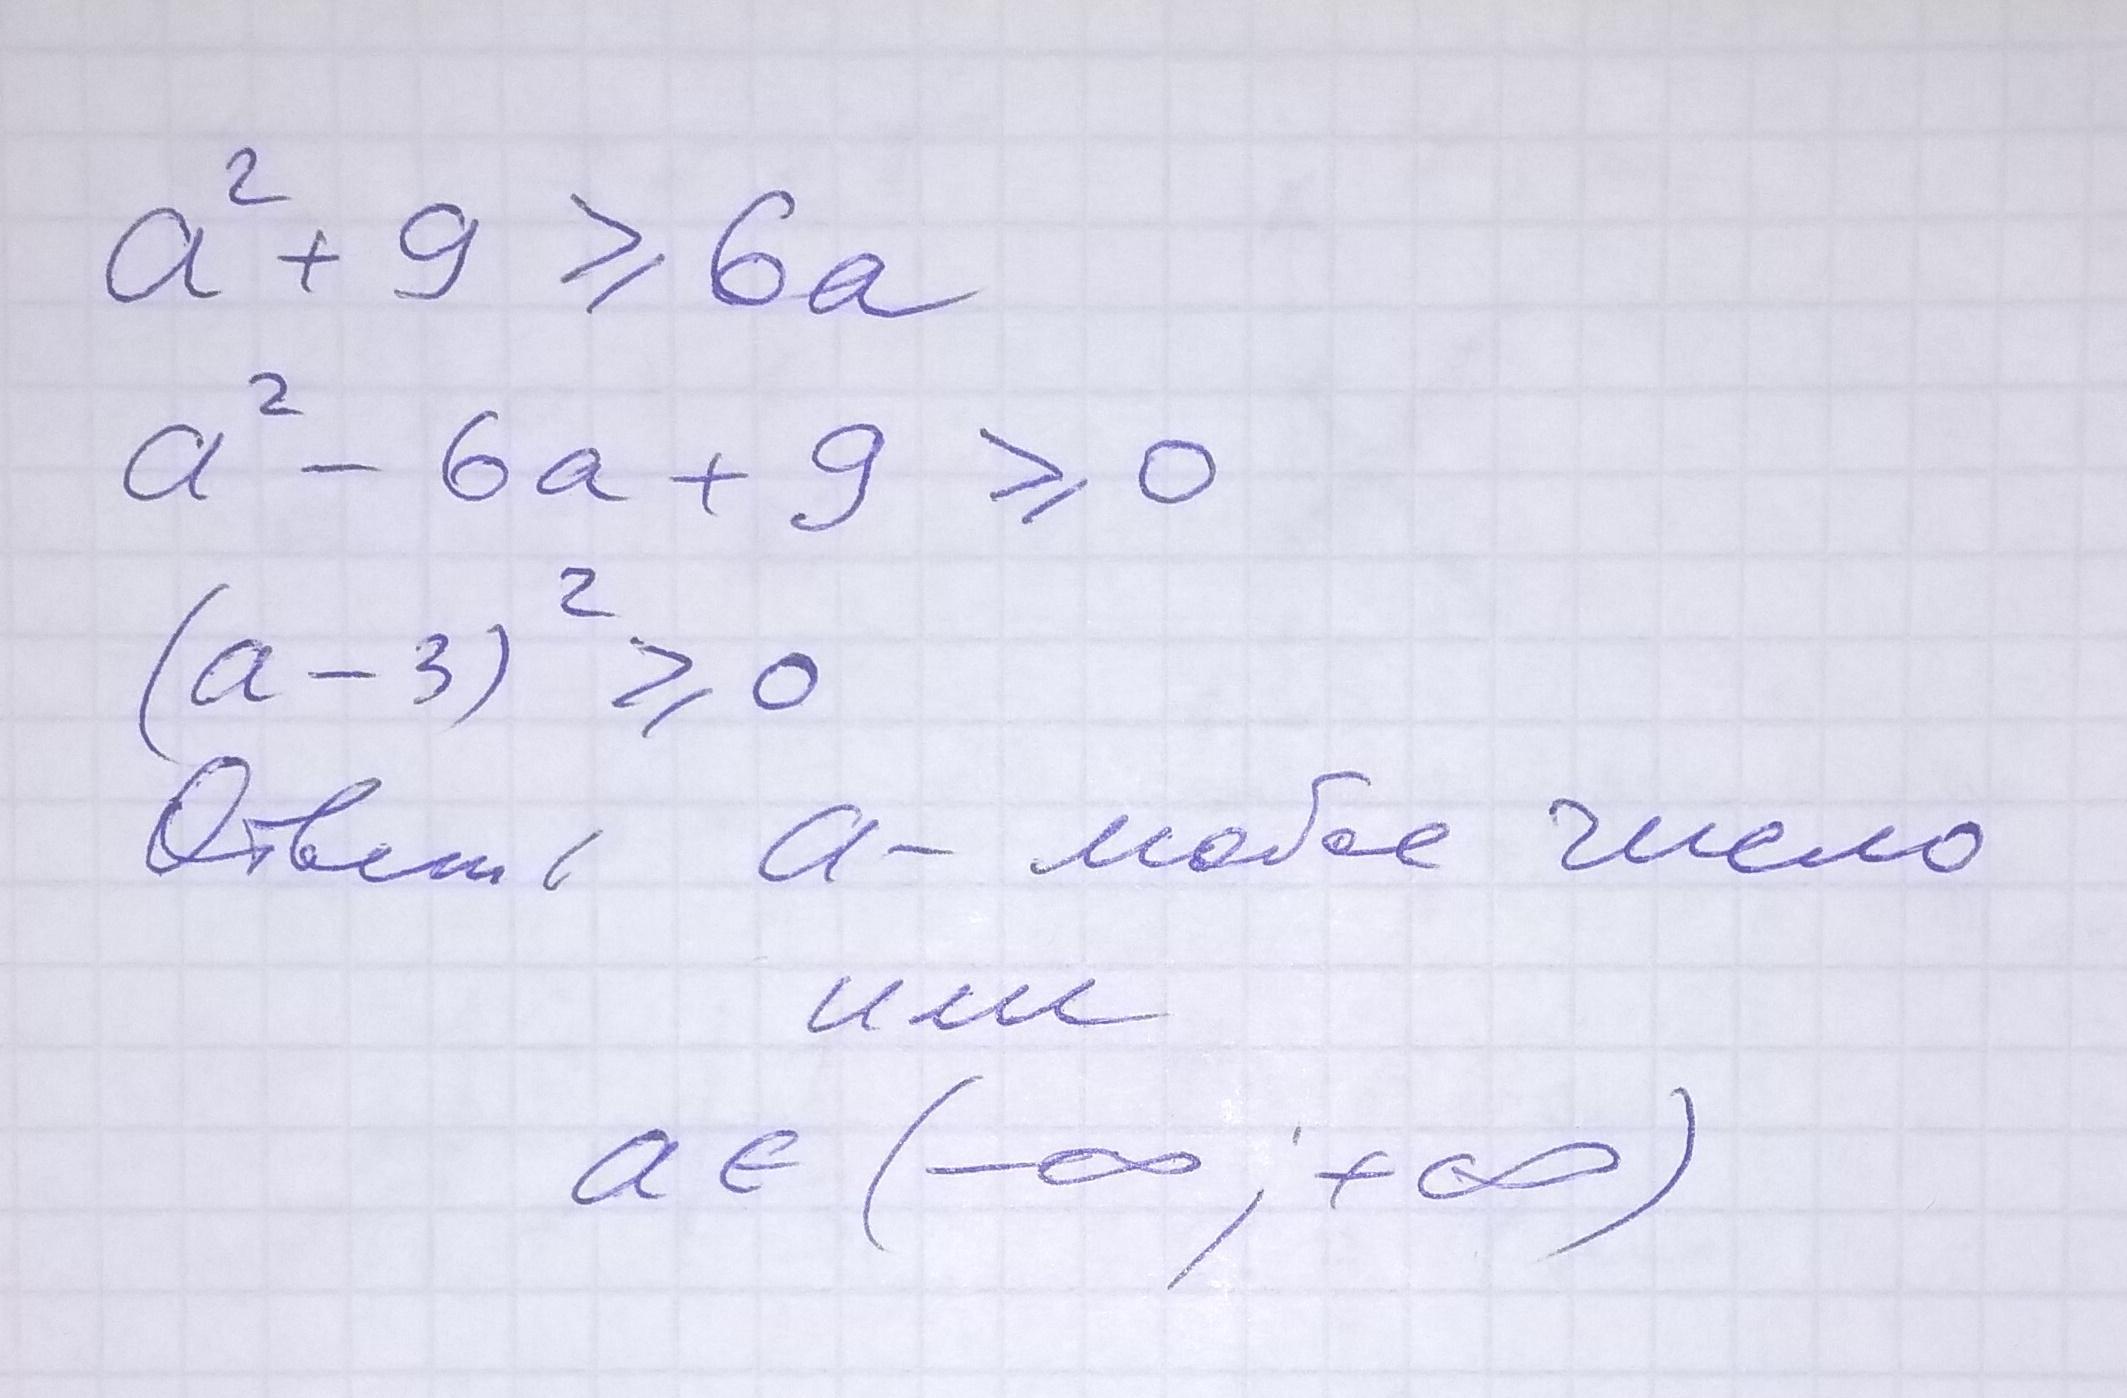 a² + 9 ⩾ 6a
a² - 6a + 9 ⩾ 0
(a - 3)² ⩾ 0
Ответ: a - любое число
или
a ∈ (-∞; +∞)